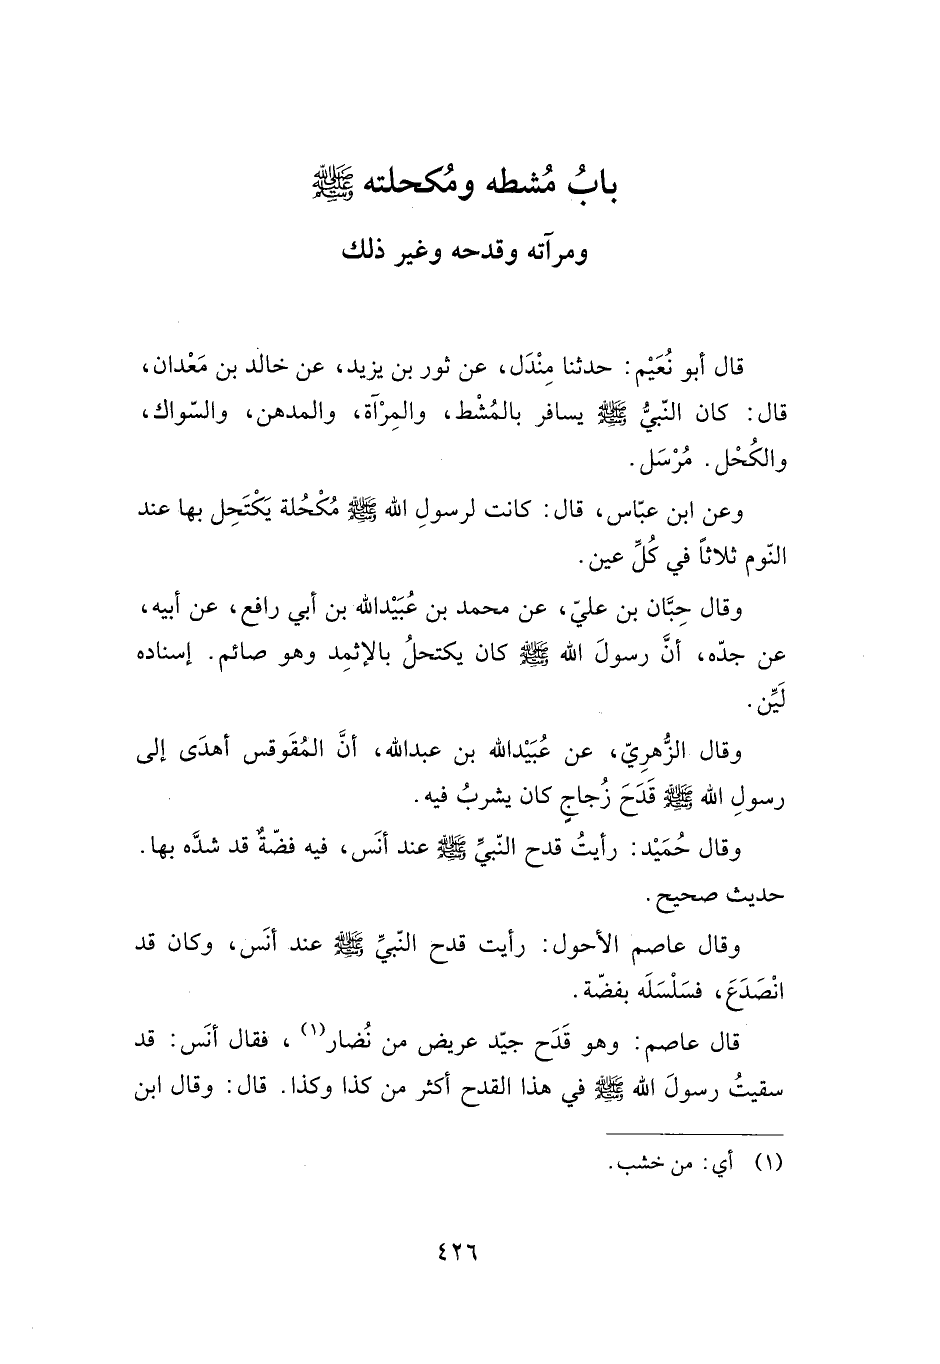 بابُ مُشطه ومُكحلته ﷺ
ومرآته وقدحه وغير ذلك
قال أبو نُعَيْم: حدثنا مِنْدَل، عن ثور بن يزيد، عن خالد بن مَعْدان،
قال: كان النّبيُّ ﷺ يسافر بالمُشْط، والمِرْآة، والمدهن، والسّواك،
والكُحْل. مُرْسَل.
وعن ابن عبّاس، قال: كانت لرسولِ الله ﷺ مُكْحُلة يَكْتَحِل بها عند
النّوم ثلاثاً في كُلِّ عين.
وقال حِبَّان بن عليّ، عن محمد بن عُبَيْدالله بن أبي رافع، عن أبيه،
عن جدّه، أنَّ رسولَ الله ﷺ كان يكتحلُ بالإثمِد وهو صائم. إسناده
لَيِّن.
وقال الزُّهرِيّ، عن عُبَيْدالله بن عبدالله، أنَّ المُقَوقس أهدَى إلى
رسولِ الله ﷺ قَدَحَ زُجاجٍ كان يشربُ فيه.
وقال حُمَيْد: رأيتُ قدح النّبيِّ ﷺ عند أنَس، فيه فضّةٌ قد شدَّه بها.
حديث صحيح.
وقال عاصم الأحول: رأيت قدح النّبيِّ ﷺ عند أنَس، وكان قد
انْصَدَعَ، فسَلْسَلَه بفضّة.
قال عاصم: وهو قَدَح جيّد عريض من نُضار(١) ، فقال أنَس: قد
سقيتُ رسولَ الله ﷺ في هذا القدح أكثر من كذا وكذا. قال: وقال ابن
(١) أي: من خشب.
٤٢٦